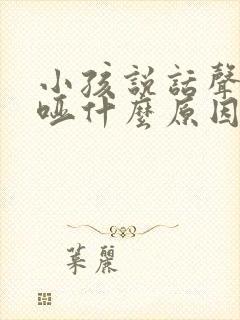 小孩說話聲
啞什麼原因
葉麗